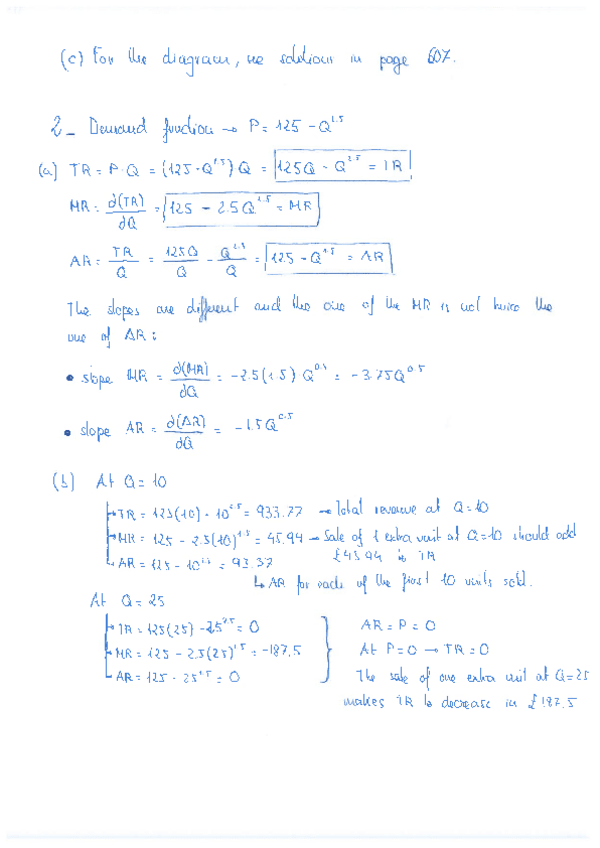 (c) For the diagram, see solutions in page 607.
2_ Demand function → P = 125 - Q^1.5
(a) TR = P·Q = (125 - Q^1.5) Q = 125Q - Q^2.5 = TR
MR = ∂(TR)/∂Q = 125 - 2.5Q^1.5 = MR
AR = TR/Q = 125Q/Q - Q^2.5/Q = 125 - Q^1.5 = AR
The slopes are different and the one of the MR is not twice the
one of AR:
• slope MR = ∂(MR)/∂Q = -2.5(1.5) Q^0.5 = -3.75Q^0.5
• slope AR = ∂(AR)/∂Q = -1.5Q^0.5
(b) At Q = 10
TR = 125(10) - 10^2.5 = 933.77 → Total revenue at Q=10
MR = 125 - 2.5(10)^1.5 = 45.94 → Sale of 1 extra unit at Q=10 should add
£45.94 to TR
AR = 125 - 10^1.5 = 93.37
↳ AR for each of the first 10 units sold.
At Q = 25
TR = 125(25) - 25^2.5 = 0 AR = P = 0
MR = 125 - 2.5(25)^1.5 = -187.5 At P=0 → TR=0
AR = 125 - 25^1.5 = 0 The sale of one extra unit at Q=25
makes TR to decrease in £187.5